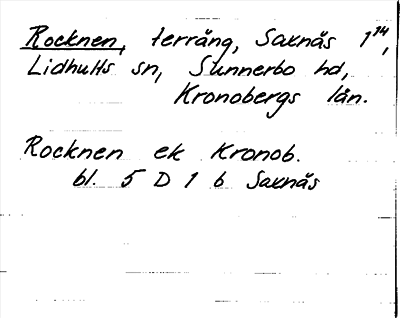 Rocknen, terräng, Saknäs 1¹⁴,
Lidhults sn, Sunnerbo hd,
Kronobergs län.
Rocknen ek Kronob.
bl. 5 D 1 b Saknäs